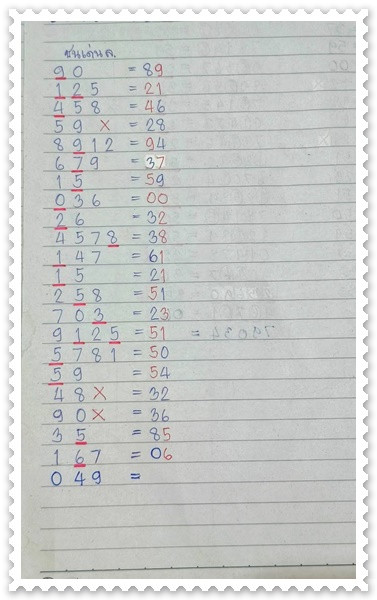 ชนเด่นล.
90 = 89
125 = 21
458 = 46
59 × = 28
8912 = 94
679 = 37
15 = 59
036 = 00
26 = 32
4578 = 38
147 = 61
15 = 21
258 = 51
703 = 23
9125 = 51 =
5781 = 50
59 = 54
48 × = 32
90 × = 36
35 = 85
167 = 06
049 =